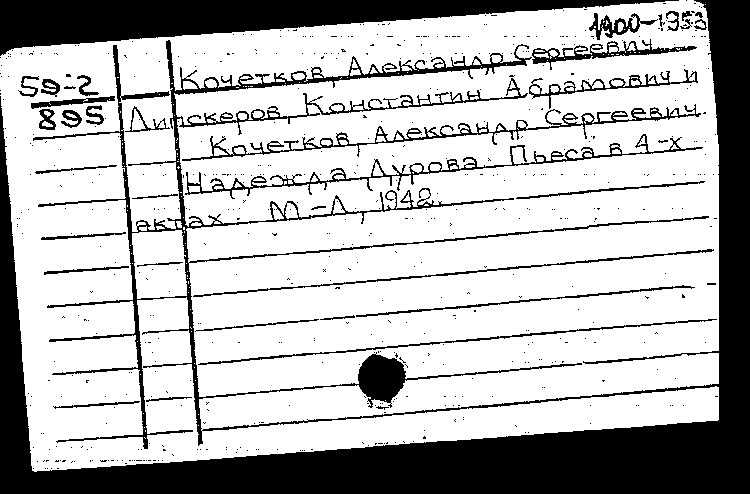 1900-1953
59-2 Кочетков, Александр Сергеевич
895 Липскеров, Константин Абрамович и
Кочетков, Александр Сергеевич.
Надежда Дурова. Пьеса в 4-х
актах. М-Л, 1942.